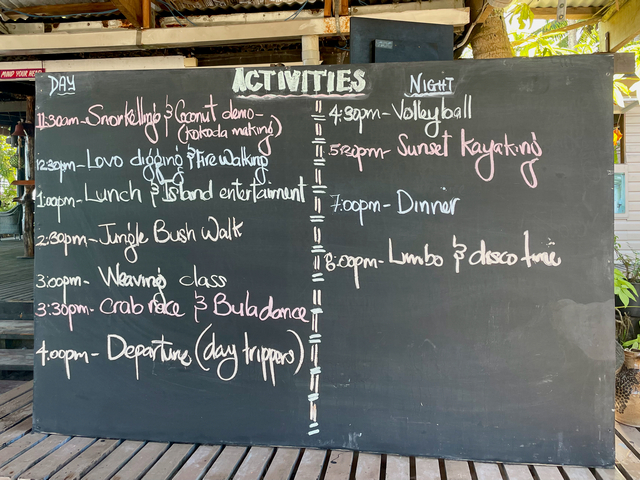 MIND YOUR HEAD
ACTIVITIES
DAY
11:30am - Snorkelling & Coconut demo -
(kokoda making)
12:30pm - Lovo digging & Fire Walking
1:00pm - Lunch & Island entertainment
2:30pm - Jungle Bush Walk
3:00pm - Weaving class
3:30pm - Crab race & Bula dance
4:00pm - Departure (day trippers)
NIGHT
4:30pm - Volleyball
5:30pm - Sunset kayaking
7:00pm - Dinner
8:00pm - Limbo & disco time